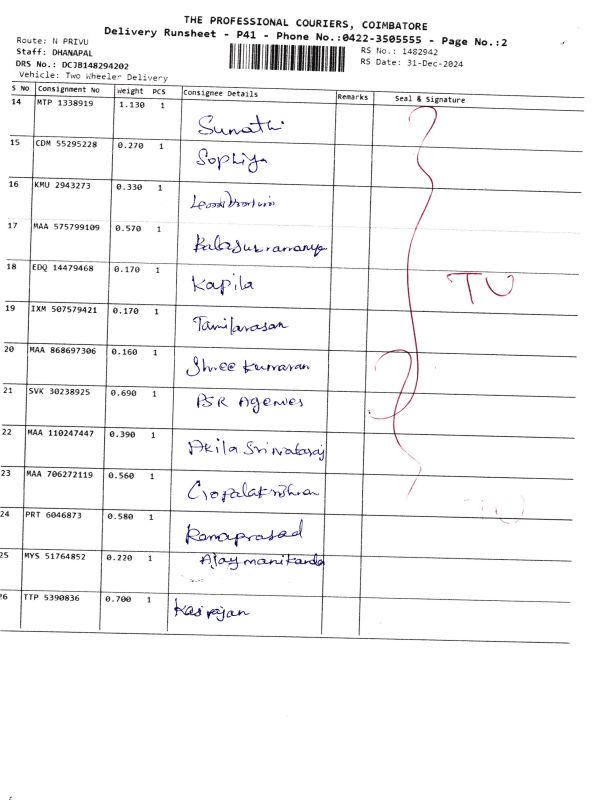 THE PROFESSIONAL COURIERS, COIMBATORE
Delivery Runsheet - P41 - Phone No.:0422-3505555 - Page No.:2
Route: N PRIVU
RS No.: 1482942
Staff: DHANAPAL
RS Date: 31-Dec-2024
DRS No.: DCJB148294202
Vehicle: Two Wheeler Delivery
S No Consignment No Weight PCS Consignee Details Remarks Seal & Signature
14 MTP 1338919 1.130 1
Sumathi
15 CDM 55295228 0.270 1
Sophiya
16 KMU 2943273 0.330 1
17 MAA 575799109 0.570 1
Balasubramaniya
18 EDQ 14479468 0.170 1
Kapila
TU
19 IXM 507579421 0.170 1
Tamilarasan
20 MAA 868697306 0.160 1
Shree Kumaran
21 SVK 30238925 0.690 1
PSR Agencies
22 MAA 110247447 0.390 1
Akila Srinivatasaj
23 MAA 706272119 0.560 1
Gopalakrishnan
24 PRT 6046873 0.580 1
Ramaprasad
25 MYS 51764852 0.220 1
Ajay manikanda
26 TTP 5390836 0.700 1
Kasirajan